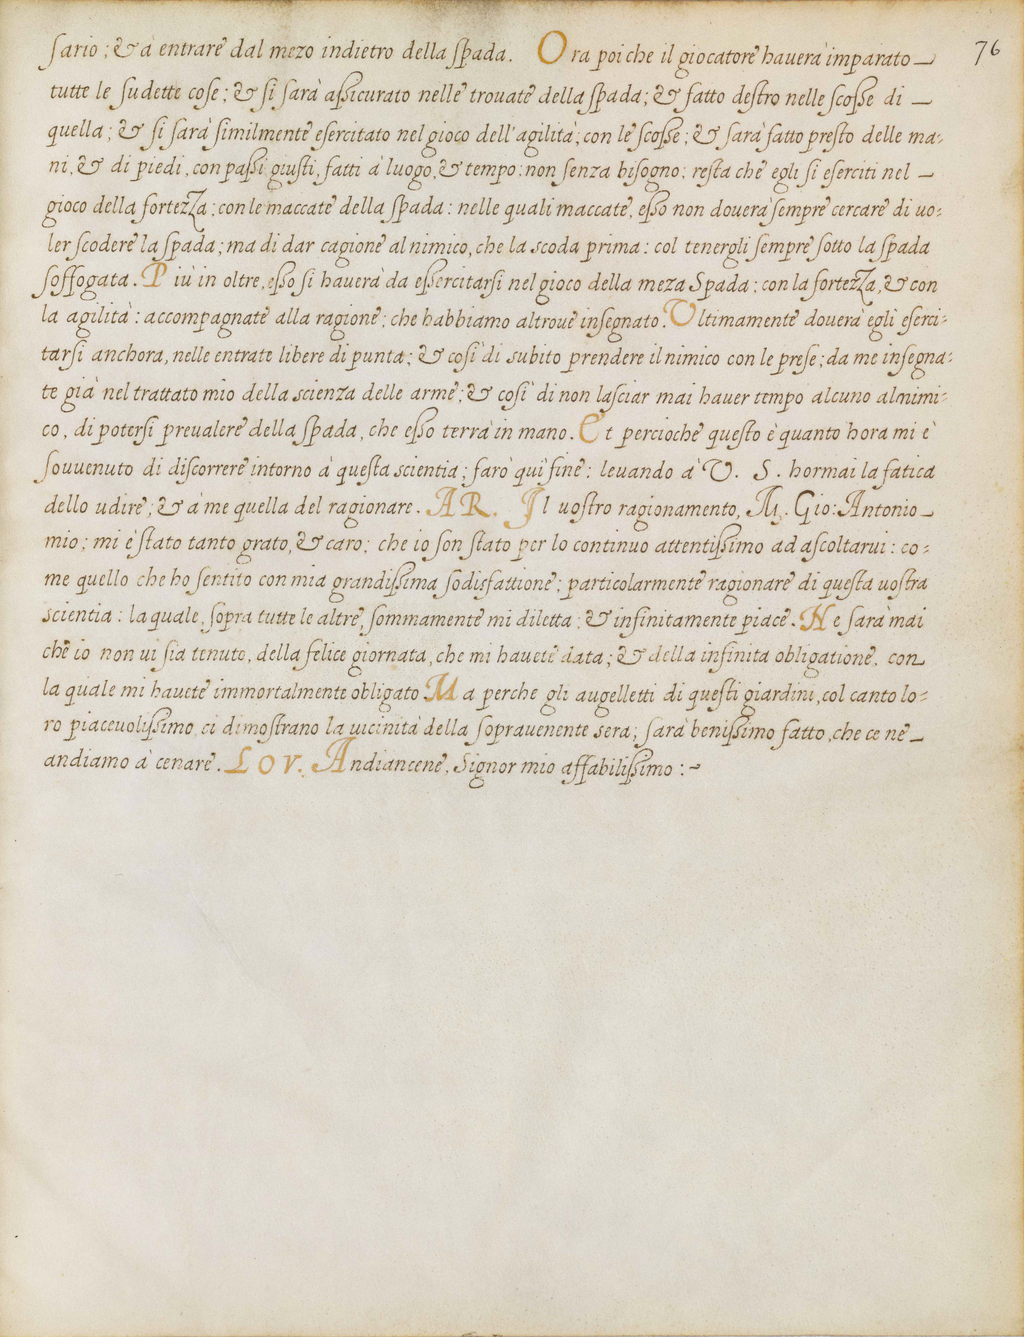 sario; & à entrare dal mezo indietro della spada. Ora poi che il giocatore hauerà imparato— 76
tutte le sudette cose; & si sarà assicurato nelle trouate della spada; & fatto destro nelle scosse di —
quella; & si sarà similmente esercitato nel gioco dell'agilità, con le scosse; & sarà fatto presto delle ma:
ni, & di piedi, con passi giusti, fatti à luogo, & tempo; non senza bisogno; resta che egli si eserciti nel —
gioco della fortezza; con le maccate della spada: nelle quali maccate, esso non douerà sempre cercare di uo:
ler scodere la spada; ma di dar cagione al nimico, che la scoda prima: col tenergli sempre sotto la spada
soffogata. Più in oltre, esso si hauerà da essercitarsi nel gioco della meza Spada; con la fortezza, & con
la agilità: accompagnate alla ragione; che habbiamo altroue insegnato. Ultimamente douerà egli eserci:
tarsi anchora, nelle entrate libere di punta; & così di subito prendere il nimico con le prese; da me insegna:
te già nel trattato mio della scienza delle arme; & così di non lasciar mai hauer tempo alcuno al nimi:
co, di potersi preualere della spada, che esso terrà in mano. Et percioche questo è quanto hora mi è
souuenuto di discorrere intorno à questa scientia; farò quì fine: leuando à V. S. hormai la fatica
dello udire; & à me quella del ragionare. AR. Il uostro ragionamento, M. Gio: Antonio—
mio; mi è stato tanto grato, & caro; che io son stato per lo continuo attentissimo ad ascoltarui: co:
me quello che ho sentito con mia grandissima sodisfattione; particolarmente ragionare di questa uostra
scientia: la quale, sopra tutte le altre, sommamente mi diletta; & infinitamente piace. Ne sarà mai
che io non ui sia tenuto, della felice giornata, che mi hauete data; & della infinita obligatione, con
la quale mi hauete immortalmente obligato Ma perche gli augelletti di questi giardini, col canto lo:
ro piaceuolissimo ci dimostrano la uicinità della soprauenente sera; sarà benissimo fatto, che ce ne—
andiamo à cenare. LOV. Andiancene, Signor mio affabilissimo:~